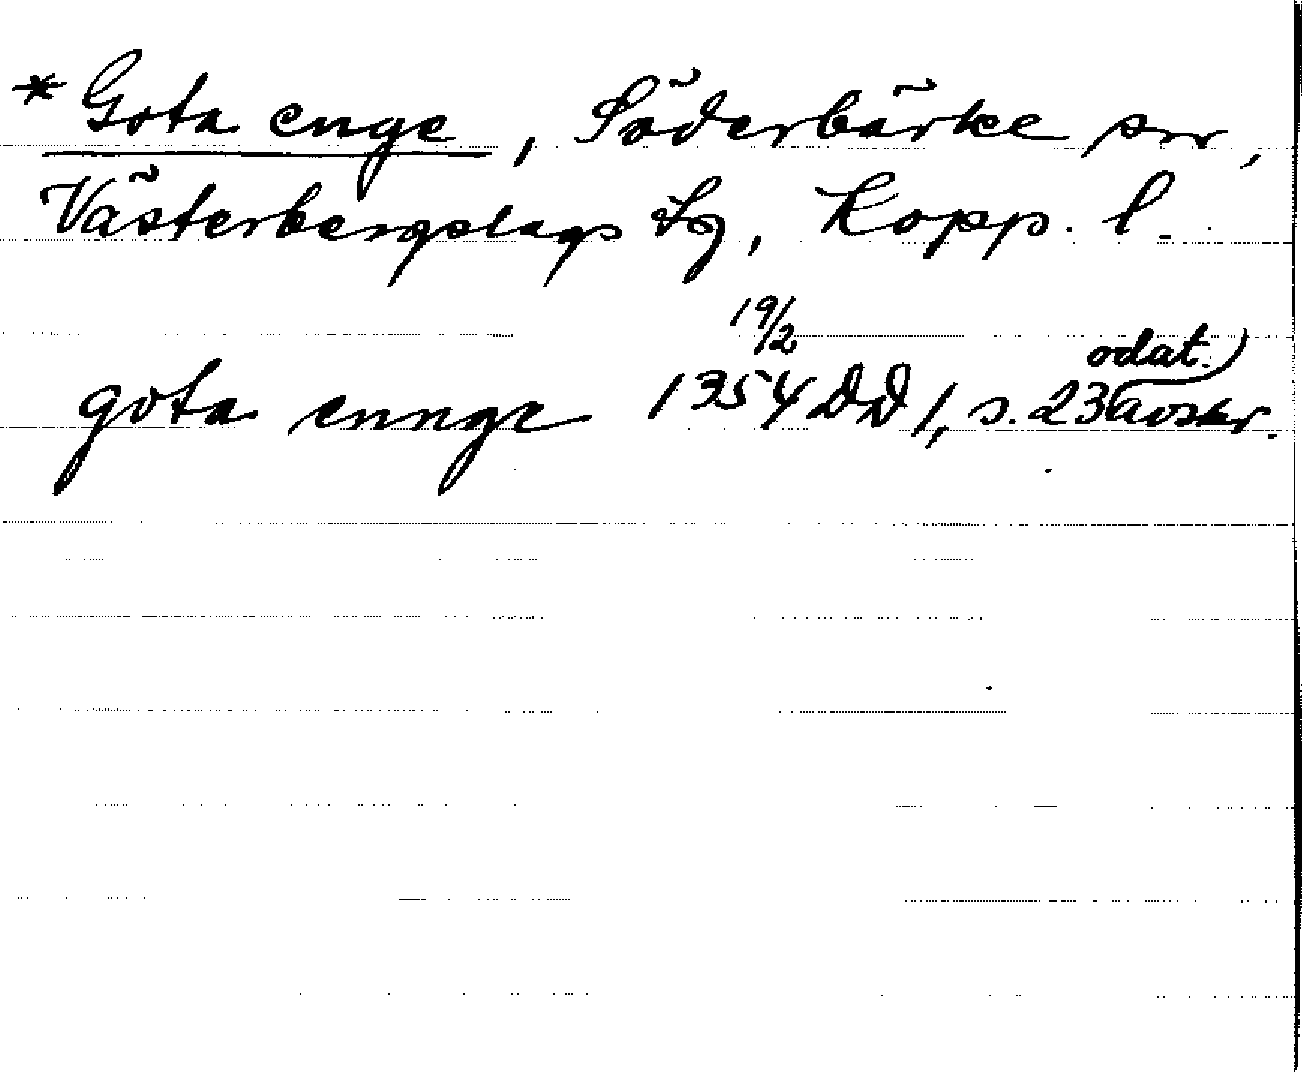 * Gota enge, Söderbärke sn,
Västerbergslags tg, Kopp. l.
gota ennge 19/2 1354 DD 1, s. 23 odat. avskr.